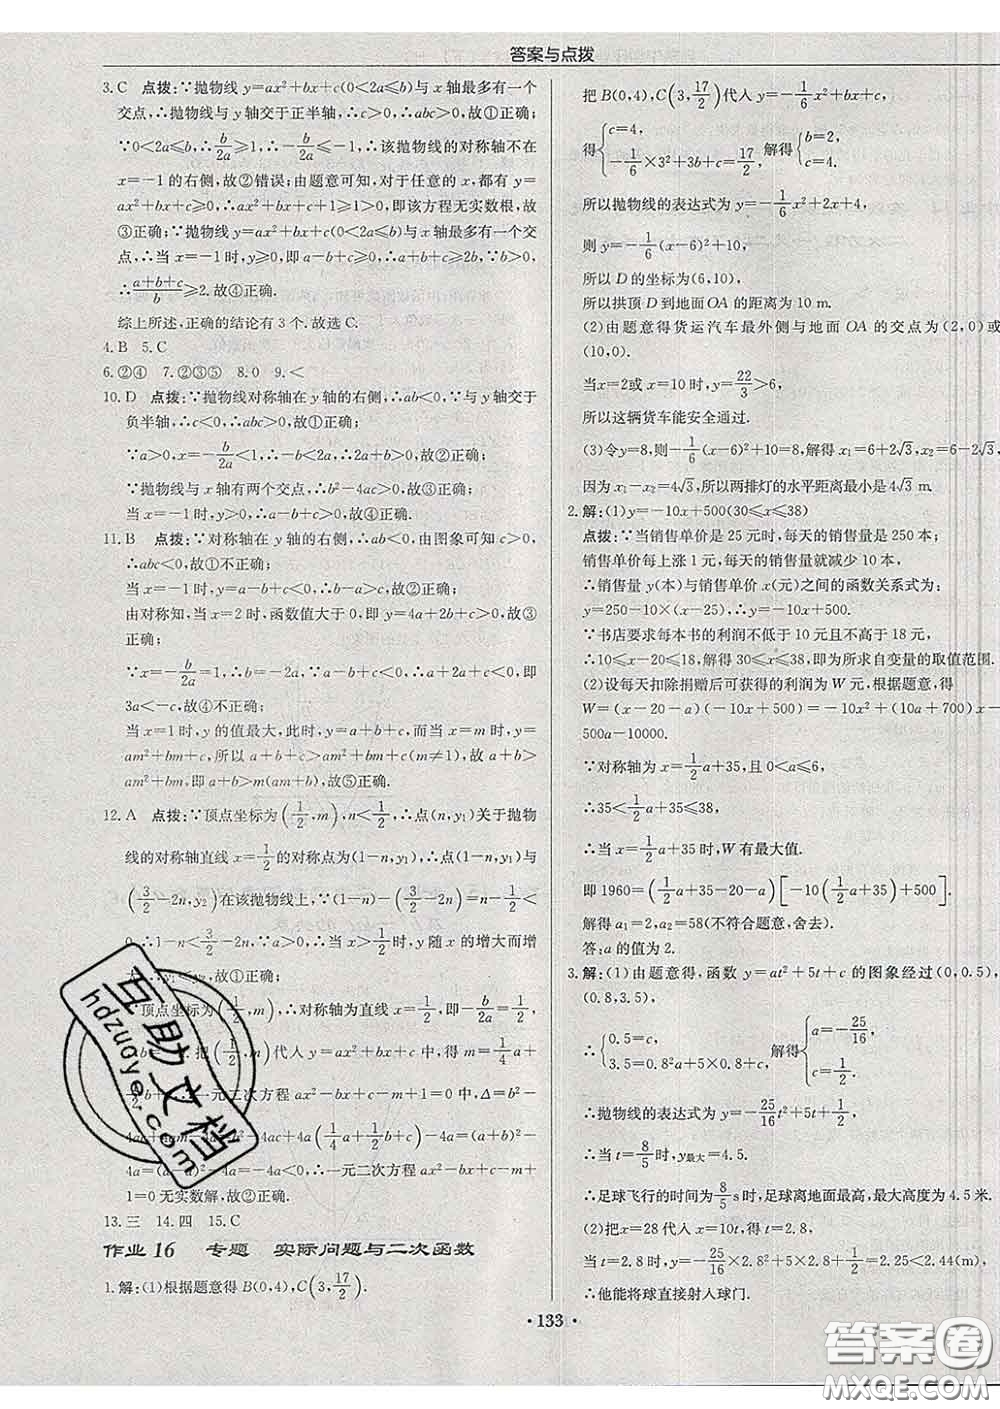 答案与点拨
3.C 点拨:∵抛物线 y=ax²+bx+c(0<2a≤b)与 x 轴最多有一个
交点,∴抛物线与 y 轴交于正半轴,∴c>0,∴abc>0,故①正确;
∵0<2a≤b,∴b/2a≥1,∴-b/2a≤-1,∴该抛物线的对称轴不在
x=-1 的右侧,故②错误;由题意可知,对于任意的 x,都有 y=
ax²+bx+c≥0,∴ax²+bx+c+1≥1>0,即该方程无实数根,故
③正确;∵抛物线 y=ax²+bx+c(0<2a≤b)与 x 轴最多有一个交
点,∴当 x=-1 时,y≥0,即 a-b+c≥0,∴a+b+c≥2b,∵b>0,
∴(a+b+c)/b≥2.故④正确.
综上所述,正确的结论有 3 个.故选 C.
4.B 5.C
6.②④ 7.②③⑤ 8.0 9.<
10.D 点拨:∵抛物线对称轴在 y 轴的右侧,∴ab<0,∵与 y 轴交于
负半轴,∴c<0,∴abc>0,故①正确;
∵a>0,x=-b/2a<1,∴-b<2a,∴2a+b>0,故②正确;
∵抛物线与 x 轴有两个交点,∴b²-4ac>0,故③正确;
当 x=-1 时,y>0,∴a-b+c>0,故④正确.
11.B 点拨:∵对称轴在 y 轴的右侧,∴ab<0,由图象可知 c>0,
∴abc<0,故①不正确;
当 x=-1 时,y=a-b+c<0,∴b-a>c,故②正确;
由对称知,当 x=2 时,函数值大于 0,即 y=4a+2b+c>0,故③
正确;
∵x=-b/2a=1,∴b=-2a,∵a-b+c<0,∴a+2a+c<0,即
3a<-c,故④不正确;
当 x=1 时,y 的值最大,此时,y=a+b+c,而当 x=m 时,y=
am²+bm+c,所以 a+b+c>am²+bm+c(m≠1),故 a+b>
am²+bm,即 a+b>m(am+b),故⑤正确.
12.A 点拨:∵顶点坐标为(1/2,m),n<1/2,∴点(n,y₁)关于抛物
线的对称轴直线 x=1/2的对称点为(1-n,y₁),∴点(1-n,y₁)与
(3/2-2n,y₂)在该抛物线上,∵(1-n)-(3/2-2n)=n-1/2<
0,∴1-n<3/2-2n,∵a>0,∴当 x>1/2时,y 随 x 的增大而增
∴y₁<y₂,故①正确;
顶点坐标为(1/2,m),∴对称轴为直线 x=1/2,即-b/2a=1/2,
把(1/2,m)代入 y=ax²+bx+c 中,得 m=1/4a+
1/2b+c,∴一元二次方程 ax²-bx+c-m+1=0 中,Δ=b²-
4ac+4am-4a=b²-4ac+4a(1/4a+1/2b+c)-4a=(a+b)²-
4a=(a-a)²-4a=-4a<0,∴一元二次方程 ax²-bx+c-m+
1=0 无实数解,故②正确.
13.三 14.四 15.C
作业16 专题 实际问题与二次函数
1.解:(1)根据题意得 B(0,4),C(3,17/2).
把 B(0,4),C(3,17/2)代入 y=-1/6x²+bx+c,
得{c=4, -1/6×3²+3b+c=17/2,解得{b=2, c=4.
所以抛物线的表达式为 y=-1/6x²+2x+4,
则 y=-1/6(x-6)²+10,
所以 D 的坐标为(6,10),
所以拱顶 D 到地面 OA 的距离为 10 m.
(2)由题意得货运汽车最外侧与地面 OA 的交点为(2,0)或
(10,0).
当 x=2或 x=10 时,y=22/3>6,
所以这辆货车能安全通过.
(3)令 y=8,则-1/6(x-6)²+10=8,解得 x₁=6+2√3,x₂=6-2√3,
因为 x₁-x₂=4√3,所以两排灯的水平距离最小是 4√3 m.
2.解:(1)y=-10x+500(30≤x≤38)
点拨:∵当销售单价是 25 元时,每天的销售量是 250 本;
销售单价每上涨 1 元,每天的销售量就减少 10 本,
∴销售量 y(本)与销售单价 x(元)之间的函数关系式为:
y=250-10×(x-25),∴y=-10x+500.
∵书店要求每本书的利润不低于 10 元且不高于 18 元,
∴10≤x-20≤18,解得 30≤x≤38,即为所求自变量的取值范围.
(2)设每天扣除捐赠后可获得的利润为 W 元,根据题意,得
W=(x-20-a)(-10x+500)=-10x²+(10a+700)x-
500a-10000.
∵对称轴为 x=1/2a+35,且 0<a≤6,
∴35<1/2a+35≤38,
∴当 x=1/2a+35 时,W 有最大值.
即 1960=(1/2a+35-20-a)[-10(1/2a+35)+500].
解得 a₁=2,a₂=58(不符合题意,舍去).
答:a 的值为 2.
3.解:(1)由题意得,函数 y=at²+5t+c 的图象经过(0,0.5),
(0.8,3.5),
∴{0.5=c, 3.5=0.8²a+5×0.8+c,解得{a=-25/16, c=1/2.
∴抛物线的表达式为 y=-25/16t²+5t+1/2,
∴当 t=8/5时,y最大=4.5.
∴足球飞行的时间为8/5s时,足球离地面最高,最大高度为 4.5 米.
(2)把 x=28 代入 x=10t,得 t=2.8,
当 t=2.8 时,y=-25/16×2.8²+5×2.8+1/2=2.25<2.44(m)
∴他能将球直接射入球门.
133
互助文档
hdzuoye.com
答案圈
MXQE.COM